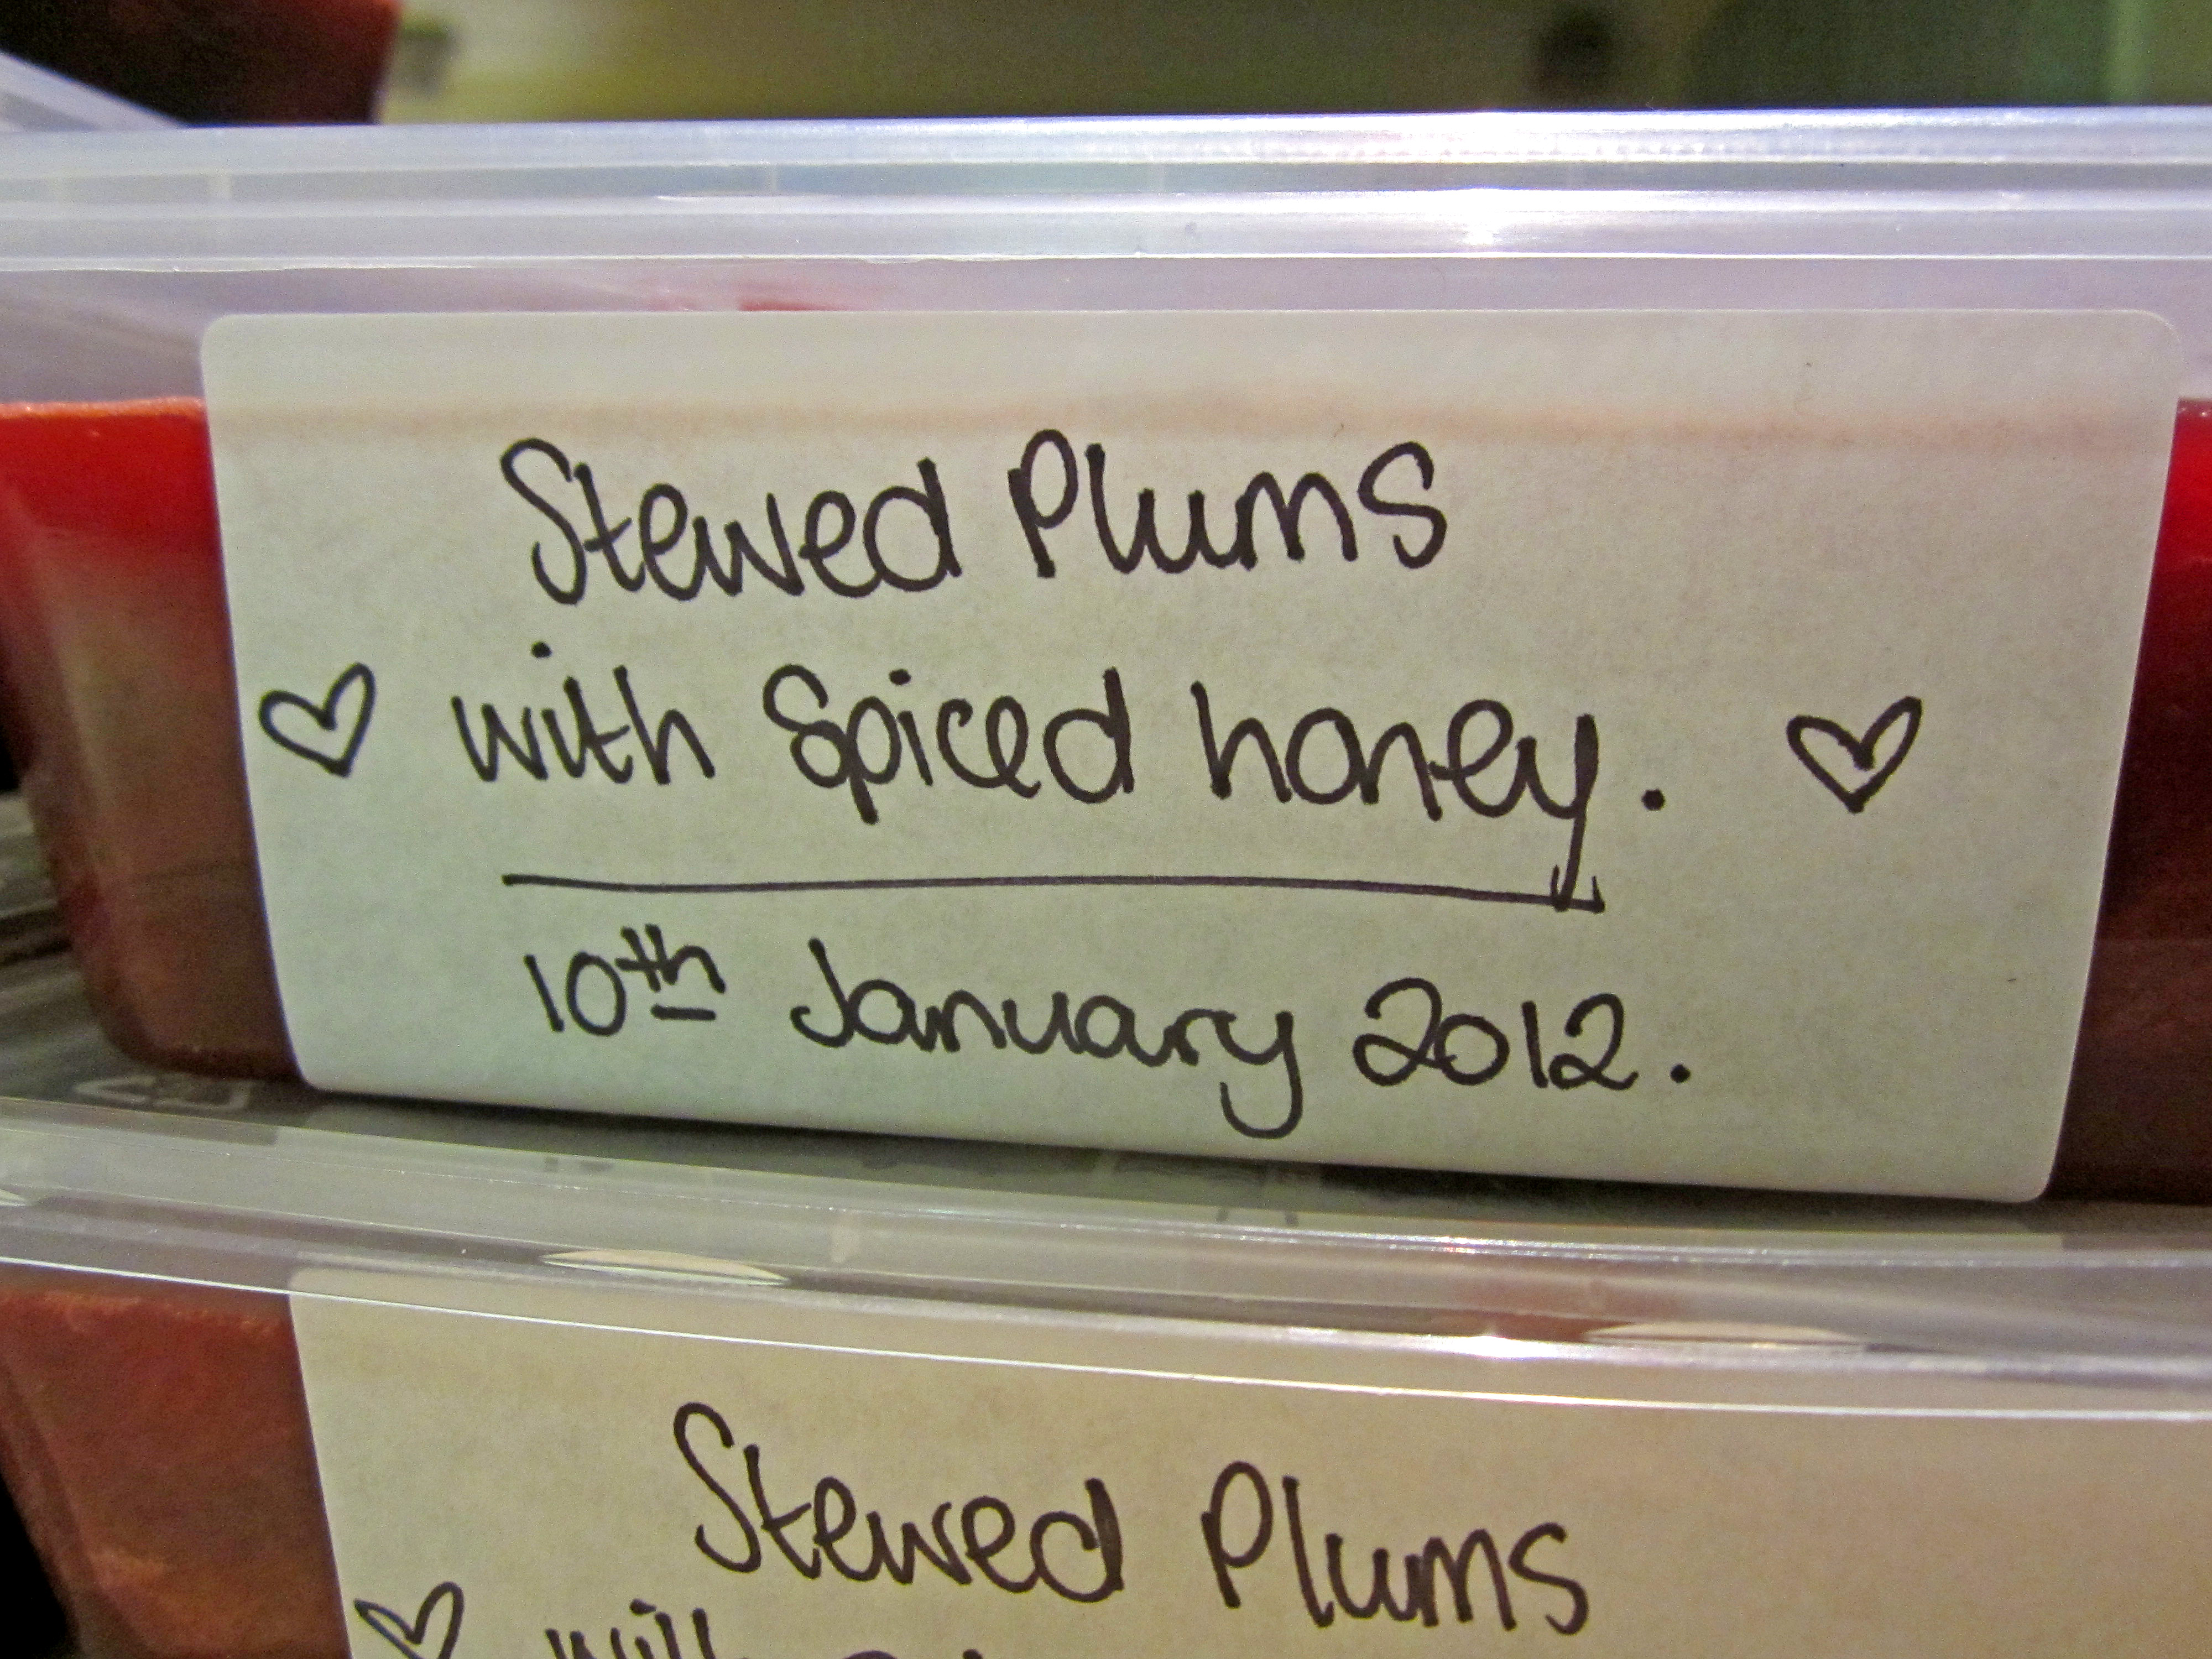 Stewed Plums
with Spiced honey.
10th January 2012.
Stewed Plums